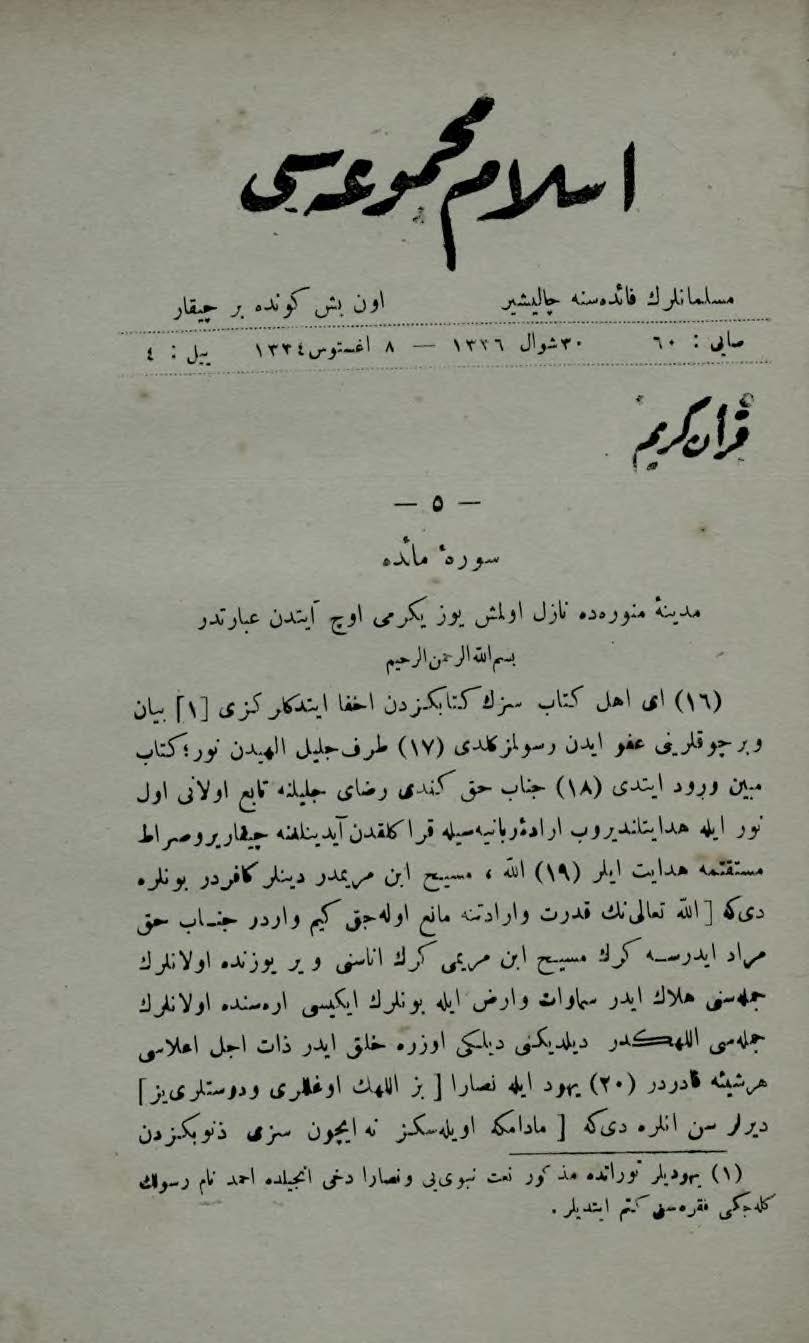 اسلام مجموعه‌سی
مسلمانلرك فائده‌سنه چالیشیر اون بش كونده بر چیقار
صایی : ٦٠ ٣٠ شوال ١٣٣٦ — ٨ اغستوس ١٣٣٤ ییل : ٤
قرآن كریم
— ٥ —
سورهٔ مائده
مدینهٔ منوره‌ده نازل اولمش یوز یكرمی اوچ آیتدن عبارتدر
بسم الله الرحمن الرحیم
(١٦) ای اهل كتاب سزك كتابكزدن اخفا ایتدكلركزی [١] بیان
و بر چوقلرینی عفو ایدن رسولمز كلدی (١٧) طرف جلیل الهیدن نور ؛ كتاب
مبین ورود ایتدی (١٨) جناب حق كندی رضای جلیلنه تابع اولانی اول
نور ایله هدایتاندیروب ارادهٔ ربانیه‌سیله قراكلقدن آیدینلغنه چیقاریر و صراط
مستقتمه هدایت ایلر (١٩) الله ، مسیح ابن مریمدر دینلر كافردر بونلره
دی كه [ الله تعالی‌نك قدرت وارادتنه مانع اوله‌جق كیم واردر جناب حق
مراد ایدرسه كرك مسیح ابن مریمی كرك اناسنی و یر یوزنده اولانلرك
جمله‌سنی هلاك ایدر سماوات وارض ایله بونلرك ایكیسی اره‌سنده اولانلرك
جمله‌سی اللهكدر دیلدیكنی دیلیكی اوزره خلق ایدر ذات اجل اعلاسی
هرشیئه قادردر (٢٠) یهود ایله نصارا [ بز اللهك اوغللری ودوستلری‌یز ]
دیرلر سن انلره دی كه [ مادامكه اویله‌سكز نه ایچون سزی ذنوبكزدن
(١) یهودیلر توراتده مذكور نعت نبوی‌یی ونصارا دخی انجیلده احمد نام رسولك
كله‌جكی فقره‌سنی كتم ایتدیلر .